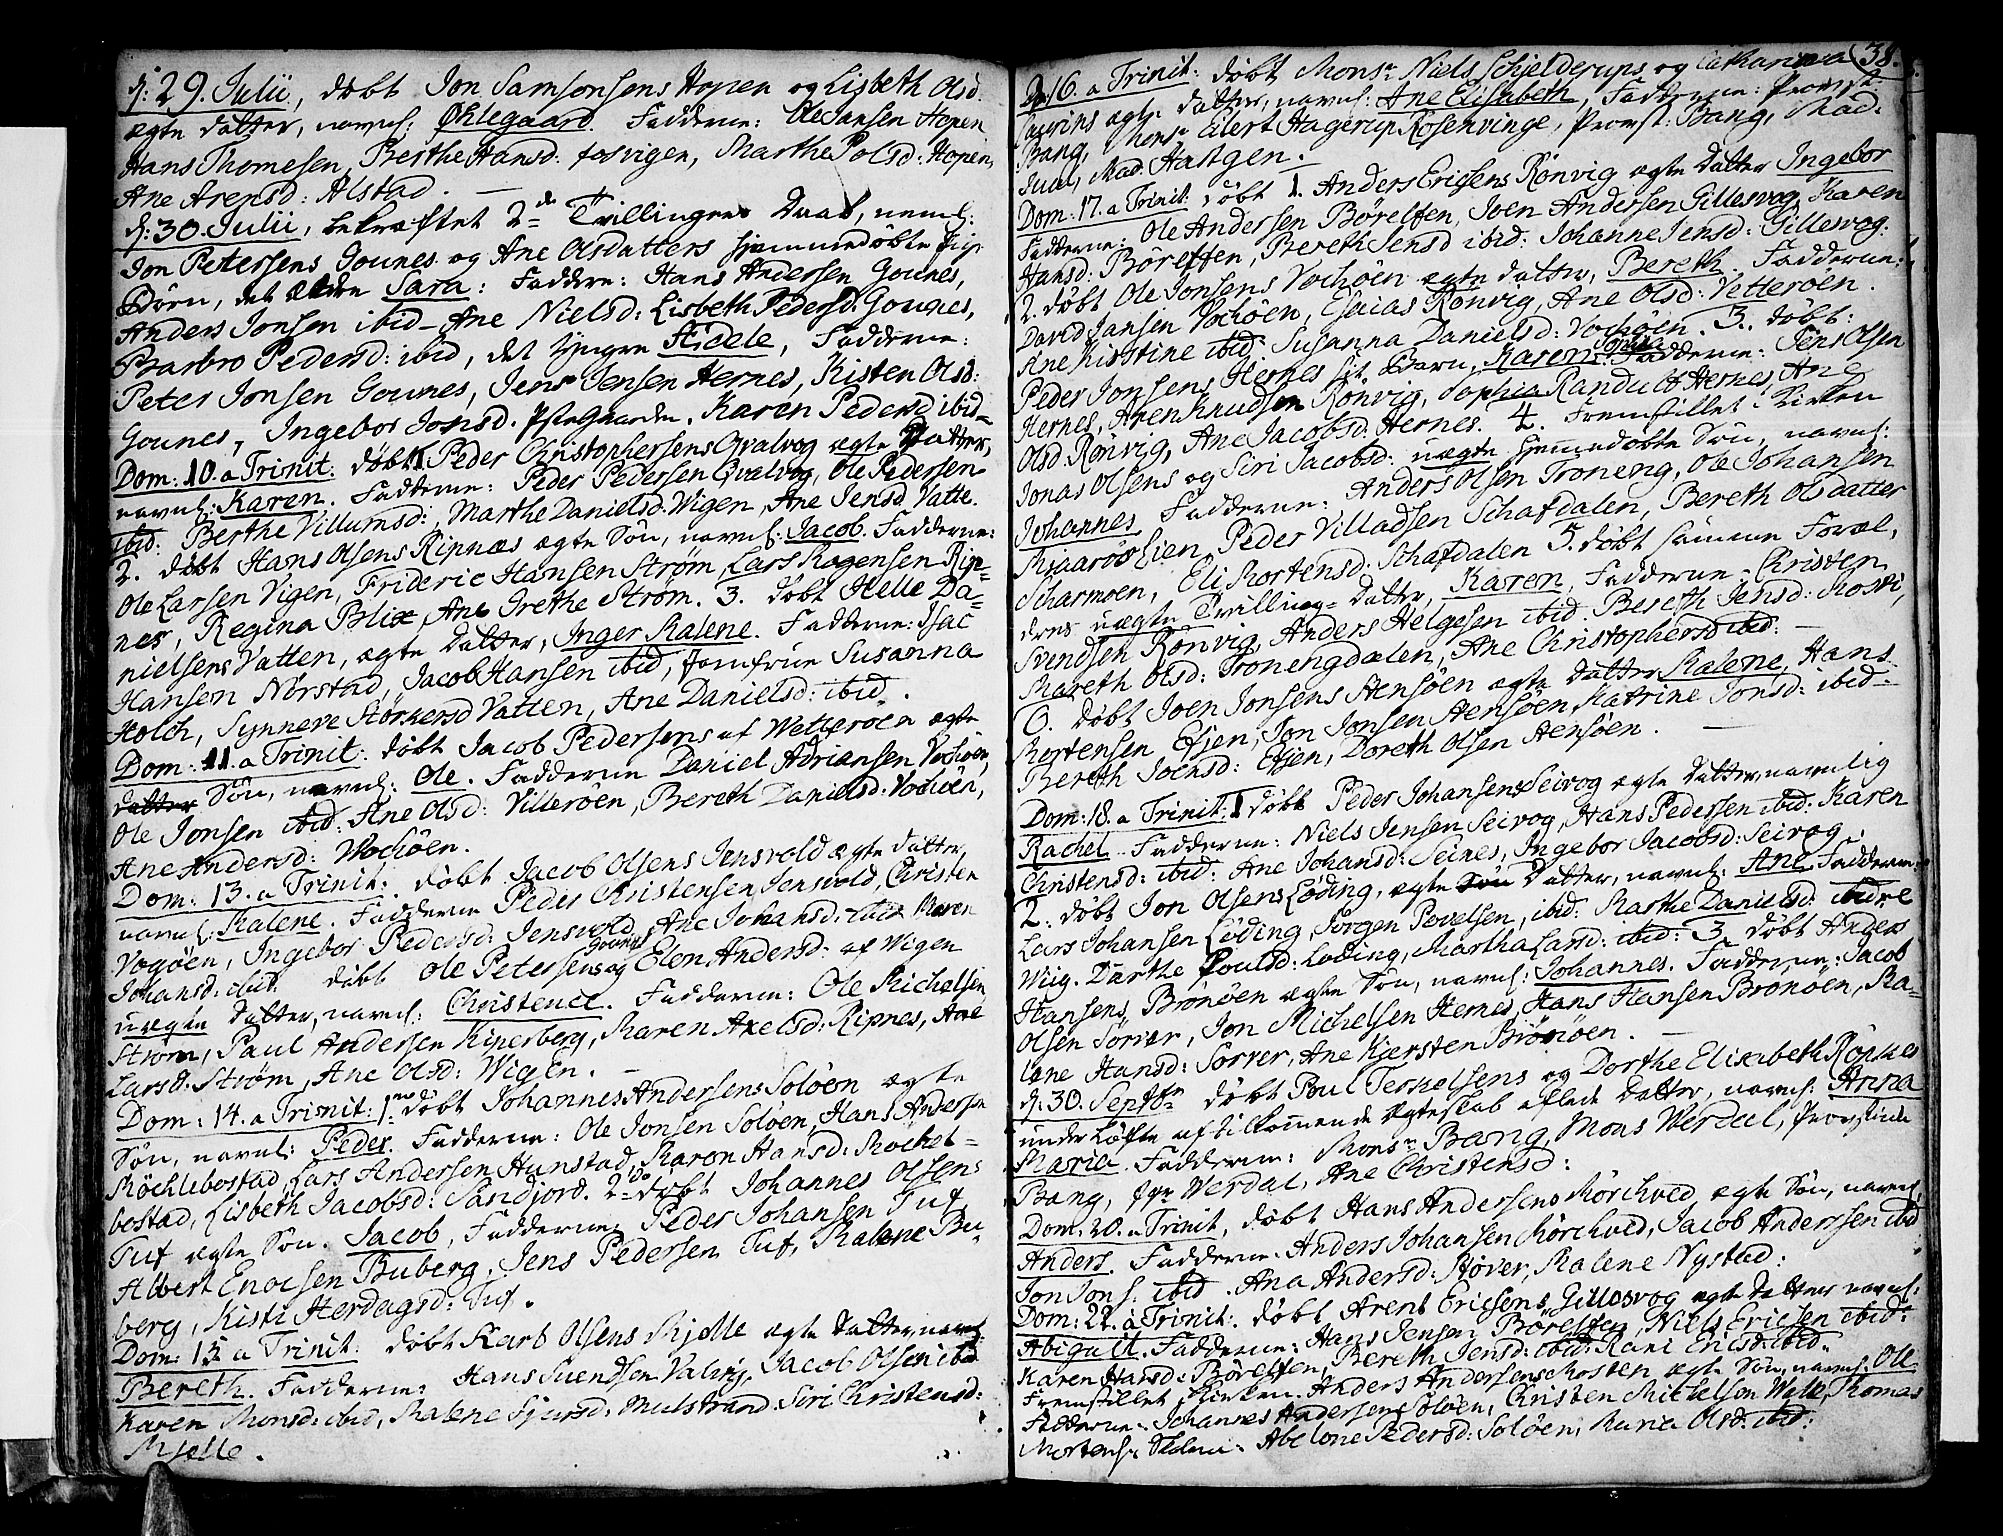 d: 29. Julii, døbt Jon Samsonsens Hopen og Lisbeth Olsd.
ægte Datter, navnl: Øhlegaard. Fadderne: Ole Jansen Hopen
Hans Thomesen, Berthe Hansd: fosvigen, Marthe Polsd: Hopen,
Ane Arensd: Alstad.
d: 30. Julii, bekræftet 2de Tvillingers Daab, neml:
Jon Petersens Gounes og Ane Olsdatters hjemmedøbte Pige
Børn, det ældre Sara: Faddere: Hans Andersen Gounes,
Anders Jonsen ibid - Ane Nielsd: Lisbeth Pedersd: Gounes,
Barbro Pedersd: ibid, det yngre Fidele, Fadderne:
Peter Jonsen Gounes, Jens Jensen Hernes, Kisten Olsd:
Gounes, Ingebor Jonsd. Præstegaarden. Karen Pedersd ibid-
Dom: 10. a Trinit: døbt 1 Peder Christophersens Qvalvog ægte Datter,
navnl: Karen. Fadderne: Peder Pedersen Qvalvog, Ole Pedersen
ibid: Berthe Villumsd:, Marthe Danielsd. Wigen, Ane Jensd Vatte.
2. døbt Hans Olsens Ripnæs ægte Søn, navnl: Jacob. Fadderne:
Ole Larsen Vigen, Frideric Hansen Strøm, Lars Mogensen Rip-
nes, Regina Blix, Ane Grethe Strøm. 3. døbt Helle Da-
nielsens Vatten, ægte Datter, Inger Malene. Fadderne: Isac
Hansen Nørstad, Jacob Hansen ibid, Jomfrue Susanna
Holch, Synneve Størkersd Vatten, Ane Danielsd: ibid.
Dom: 11. a Trinit: døbt Jacob Pedersens af Wetterøen ægte
Datter Søn, navnl: Ole. Fadderne Daniel Adriansen Vochøen,
Ole Jonsen ibid: Ane Olsd: Villerøen, Bereth Danielsd: Vochøen,
Ane Andersd: Vochøen.
Dom: 13. a Trinit: døbt Jacob Olsens Jensvold ægte Datter,
navnl: Malene. Fadderne Peder Christensen Jensvold, Christen
Vogøen, Ingebor Pedersd: Jensvold, Ane Johansd: ibid Maren
Johansd: ibid: døbt Ole Petersens og Elen Andersd: af Wigen
uægte Datter, navnl: Christence. Fadderne: Ole Michelsen
Strøm, Paul Andersen Kiperberg, Maren Axelsd: Ripnes, Ane
Larsd: Strøm, Ane Olsd: Wigen.
Dom: 14. a Trinit: 1mo døbt Johannes Andersens Soløen ægte
Søn, navnl: Peder. Fadderne: Ole Jonsen Soløen, Hans Andersen
Møchlebostad, Lars Andersen Hunstad, Karen Hansd: Mochel-
bostad, Lisbeth Jacobsd: Sandjord. 2do døbt Johannes Olsens
Tuf ægte Søn. Jacob, Fadderne: Peder Johansen Tuf,
Albert Enocsen Buberg, Jens Pedersen Tuf, Malene Bu-
berg, Kisti Herdagsd: Tuf.
Dom: 15 a Trinit: døbt Karb Olsens Mjelle ægte Datter, navnl:
Bereth. Fadderne: Hans Suendsen Valvig, Jacob Olsen ibid
Karen Monsd: ibid, Malene Sjursd: Mulstrand. Siri Christensd:
Mjelle.
38.
D. 16. a Trinit: døbt Monsr Niels Schjelderups og Catharina
Laurins ægte Datter, navnl: Ane Elisabeth, Fadderne: Provst
Bang, Monsr Eilert Hagerup Rosenvinge, Provst: Bang, Mad:
Juul, Mad: Hartgen.
Dom: 17. a Trinit: døbt 1. Anders Ericsens Rønvig ægte Datter Ingebor
Fadderne: Ole Andersen Børelffen, Joen Andersen Gillesvog, Karen
Hansd: Børelffen, Bereth Jensd ibid: Johanne Jensd: Gillesvog:
2. døbt Ole Jonsens Vochøen ægte Datter, Bereth. Fadderne:
David Jansen Vochøen, Esaias Rønvig, Ane Olsd: Vetterøen.
Ane Kisstine ibid: Susanna Danielsd: Vochøen. 3. døbt:
Peder Jonsens Hernes sit Barn, Karen Sophia Fadderne: Jens Olsen
Hernes, Aren Knudsen Rønvig, Sophia Randulff Hernes, Ane
Olsd Rønvig, Ane Jacobsd: Hernes. 4. Fremstillet i Kirken
Jonas Olsens og Siri Jacobsd: uægte hjemmedøbte Søn, navnl:
Johannes Fadderne: Anders Olsen Troneng, Ole Johansen
Skiaaroslien, Peder Villadsen Schafdalen, Bereth Olsdatter
Scharmoen, Eli Mortensd: Schafdalen 5. døbt samme Foræl,
dres uægte Tvilling-Datter, Karen, Fadderne. Christen
Svendsen Rønvig, Anders Helgesen ibid. Bereth Jensd: Moevi,
Mareth Olsd: Tronengdalen, Ane Christophersd ibid:
6. døbt Joen Jonsens Stensøen ægte Datter Malene, Hans
Mortensen Esjen, Jon Jonsen Stensøen Katrine Jonsd: ibid-
Bereth Joensd: Esjen, Doreth Olsen Stensøen.
Dom: 18. a Trinit: 1 døbt Peder Johansens Seivog ægte Datter, navnlig
Rachel. Fadderne: Niels Jensen Seivog, Hans Pedersen ibid: Karen
Christensd: ibid: Ane Johansd: Seines, Ingebor Jacobsd: Seivog.
2. døbt Jon Olsens Løding, ægte Søn Datter, navnl: Ane. Fadderne:
Lars Johansen Løding, Jørgen Povelsen, ibid: Marthe Danielsd: ibid
Wiig. Darthe Poulsd: Løding, Martha Larsd: ibid: 3. døbt Anders
Hansens Brønøen ægte Søn, navnl: Johannes. Fadderne: Jacob
Olsen Sørver, Jon Michelsen Hernes, Hans Hansen Brønøen, Ma-
lene Hansd: Sørver, Ane Kjersten Brønøen.
d: 30. Septbr døbt Poul Terkelsens og Dorthe Elisabeth Røpkes
under Løfte af tilkommende Ægteskab aflede Datter, navnl: Anna
Maria. Fadderne: Monsr Bang, Mons Werdal, Provstinde
Bang, Werdal, Ane Christensd:
Dom: 20. a Trinit, døbt Hans Andersens Mørchved ægte Søn, navnl.
Anders. Fadderne: Anders Johansen Mørchved, Jacob Anderssen ibid
Jon Jons: ibid. Ana Andersd: Støver, Malene Nystad:
Dom: 22. a Trinit: døbt Arent Ericsens Gillesvog ægte Datter navnl:
Abigall. Fadderne: Hans Jensen Børelffen, Niels Ericsen ibid:
Karen Hansd: Børelffen, Bereth Jensd: ibid: Rani Ericsd: ibid.
Fremstillet i Kirken. Anders Andersens Mosten ægte Søn, navnl: Ole
Fadderne: Johannes Andersen Soløen, Christen Michelsen Walle, Thomas
Mortens: Abelone Pedersd: Soløen, Maria Olsd: ibid: